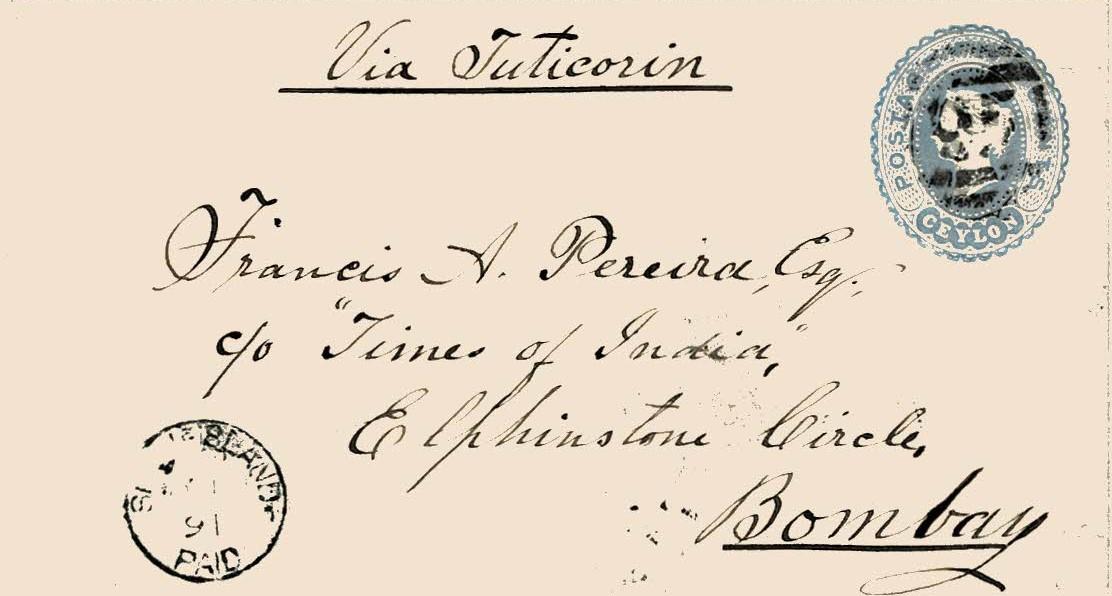 Via Tuticorin
POSTAGE
CEYLON
Francis A. Pereira, Esq.,
c/o "Times of India",
Elphinstone Circle,
Bombay
91
PAID